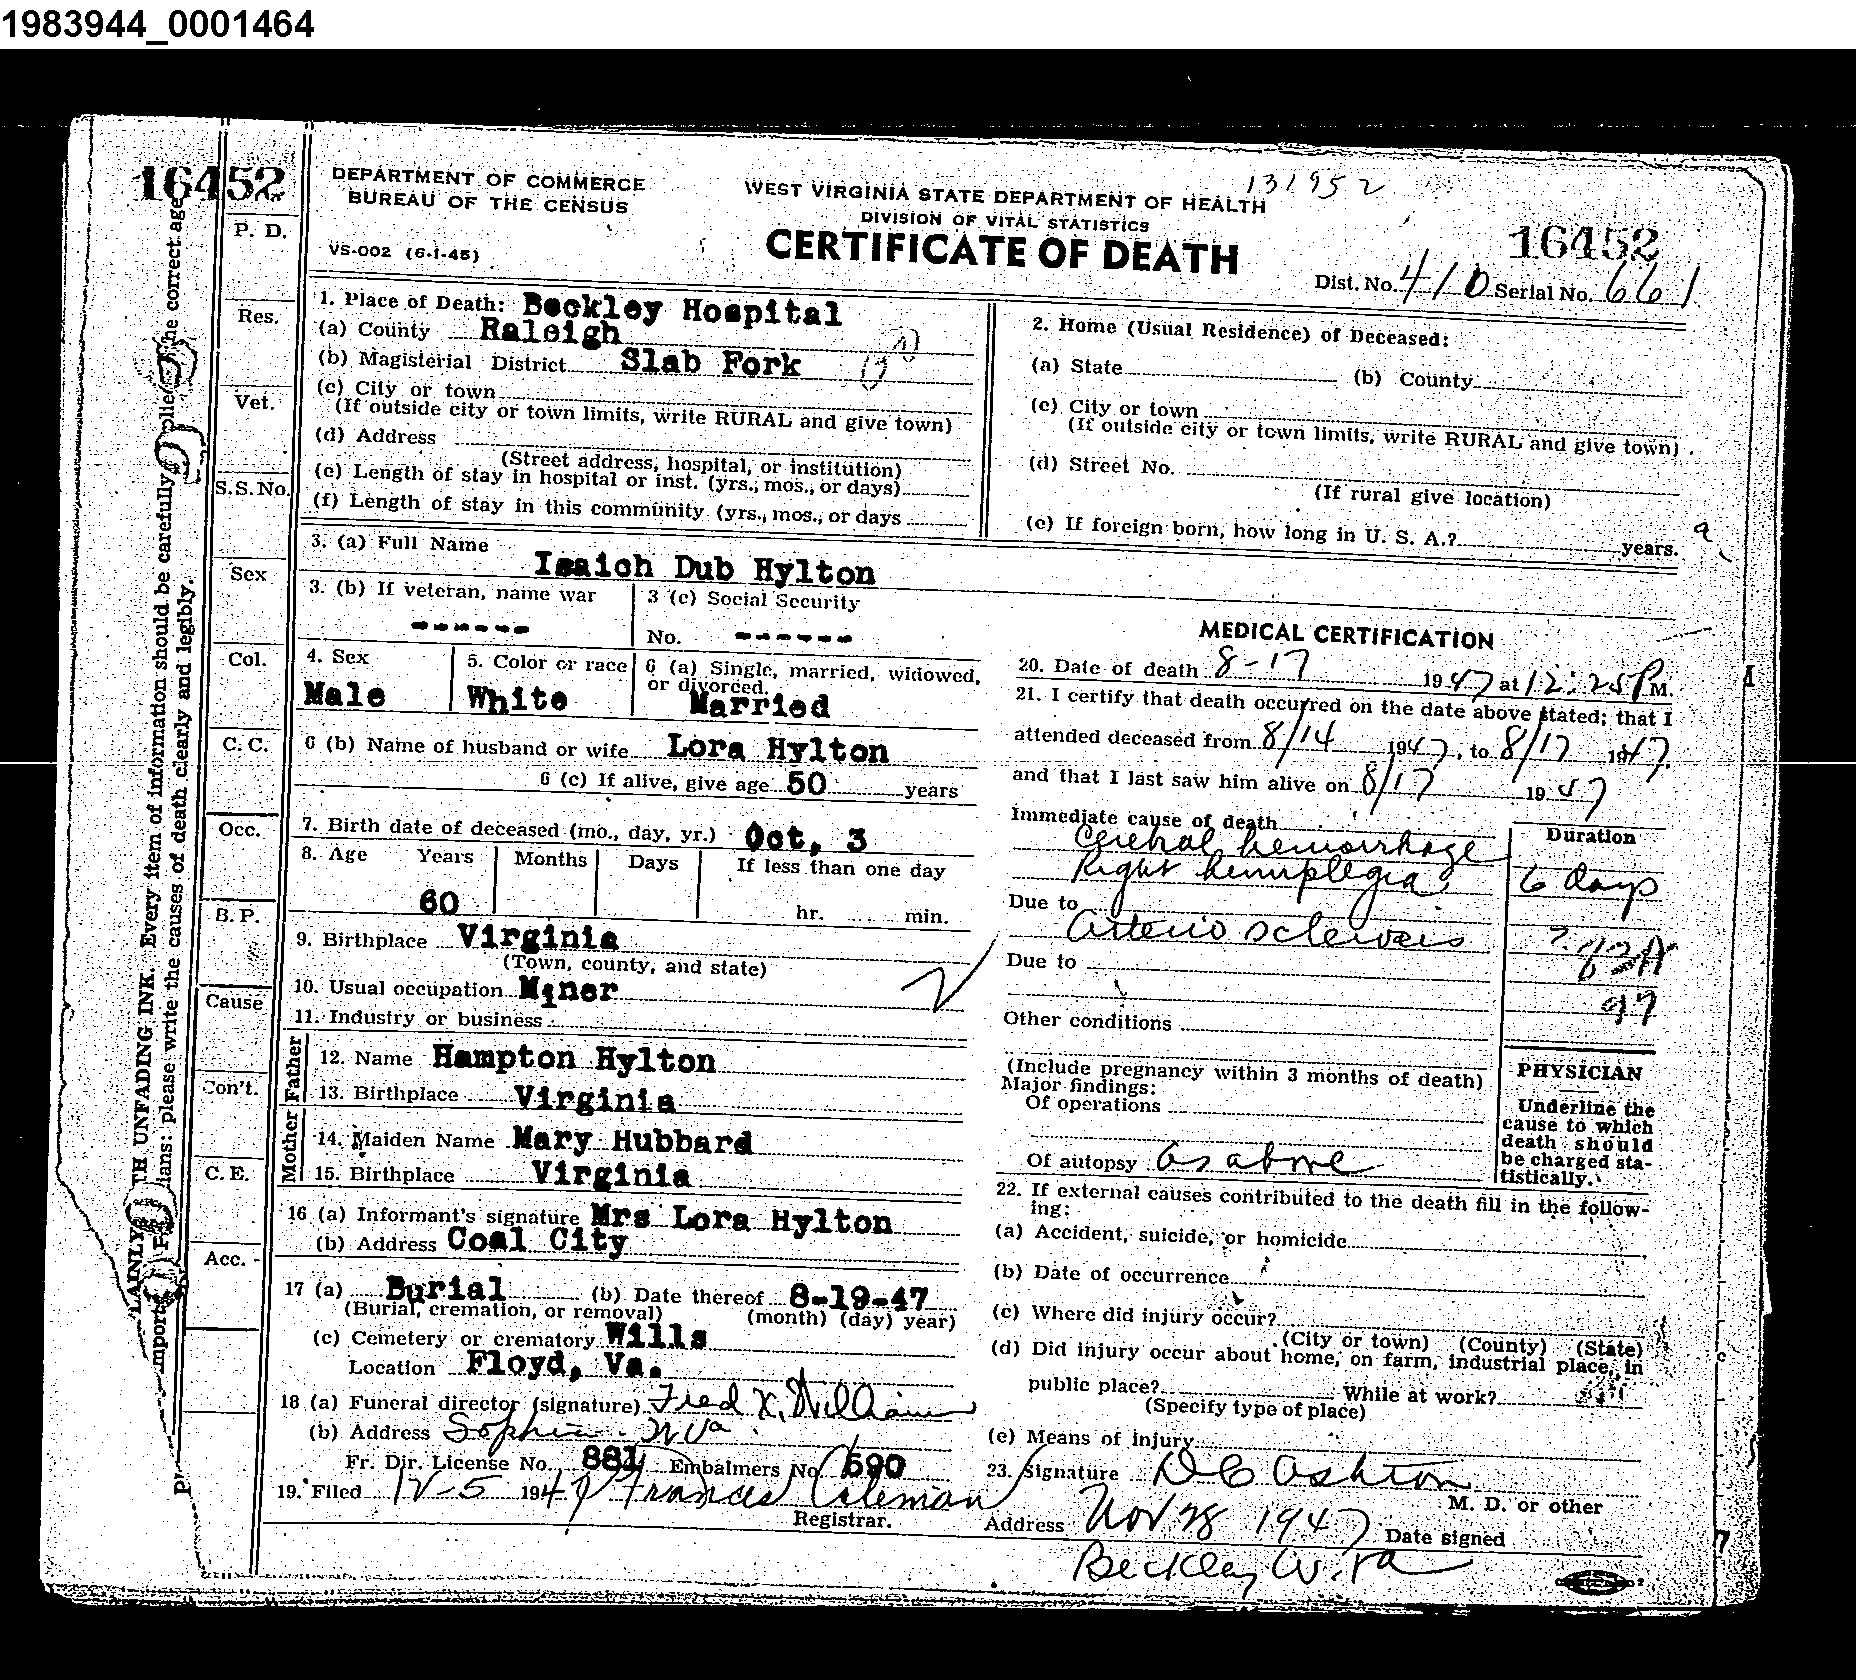 1983944_0001464
16452
DEPARTMENT OF COMMERCE
BUREAU OF THE CENSUS
VS-002 (6-1-45)
WEST VIRGINIA STATE DEPARTMENT OF HEALTH
131952
DIVISION OF VITAL STATISTICS
CERTIFICATE OF DEATH
16452
Dist. No. 410 Serial No. 661
P. D.
Res.
Vet.
S.S. No.
Sex
Col.
C. C.
Occ.
B. P.
Cause
Con't.
C. E.
Acc.
LAINLY TH UNFADING INK. Every item of information should be carefully the correct age
please write the causes of death clearly and legibly.
1. Place of Death: Beckley Hospital
(a) County Raleigh
(b) Magisterial District Slab Fork
(c) City or town
(If outside city or town limits, write RURAL and give town)
(d) Address
(Street address, hospital, or institution)
(e) Length of stay in hospital or inst. (yrs., mos., or days)
(f) Length of stay in this community (yrs., mos., or days
2. Home (Usual Residence) of Deceased:
(a) State (b) County
(c) City or town
(If outside city or town limits, write RURAL and give town)
(d) Street No.
(If rural give location)
(e) If foreign born, how long in U. S. A.? years.
3. (a) Full Name
Isaich Dub Hylton
3. (b) If veteran, name war
------
3 (c) Social Security
No. ------
4. Sex
Male
5. Color or race
White
6 (a) Single, married, widowed,
or divorced.
Married
6 (b) Name of husband or wife Lora Hylton
6 (c) If alive, give age 50 years
7. Birth date of deceased (mo., day, yr.) Oct, 3
8. Age Years Months Days If less than one day
60 hr. min.
9. Birthplace Virginia
(Town, county, and state)
10. Usual occupation Miner
11. Industry or business
Father
12. Name Hampton Hylton
13. Birthplace Virginia
Mother
14. Maiden Name Mary Hubbard
15. Birthplace Virginia
16 (a) Informant's signature Mrs Lora Hylton
(b) Address Coal City
17 (a) Burial (b) Date thereof 8-19-47
(Burial, cremation, or removal) (month) (day) year)
(c) Cemetery or crematory Wills
Location Floyd, Va.
18 (a) Funeral director (signature) Fred X. William
(b) Address Sophia W Va.
Fr. Dir. License No. 881 Embalmers No. 590
19. Filed 12-5 1947 Frances Coleman
Registrar.
MEDICAL CERTIFICATION
20. Date of death 8-17 1947 at 12:25 P M.
21. I certify that death occurred on the date above stated; that I
attended deceased from 8/14 1947, to 8/17 1947,
and that I last saw him alive on 8/17 1947
Immediate cause of death
Cerebral hemorrhage
Right hemiplegia
Duration
6 days
Due to
Arterio sclerosis
?
83A
97
Due to
Other conditions
(Include pregnancy within 3 months of death)
Major findings:
Of operations
Of autopsy as above
PHYSICIAN
Underline the
cause to which
death should
be charged sta-
tistically.
22. If external causes contributed to the death fill in the follow-
ing:
(a) Accident, suicide, or homicide
(b) Date of occurrence
(c) Where did injury occur?
(City or town) (County) (State)
(d) Did injury occur about home, on farm, industrial place, in
public place? While at work?
(Specify type of place)
(e) Means of injury
23. Signature D C Ashton
M. D. or other
Address Nov 28 1947 Date signed
Beckley W. Va